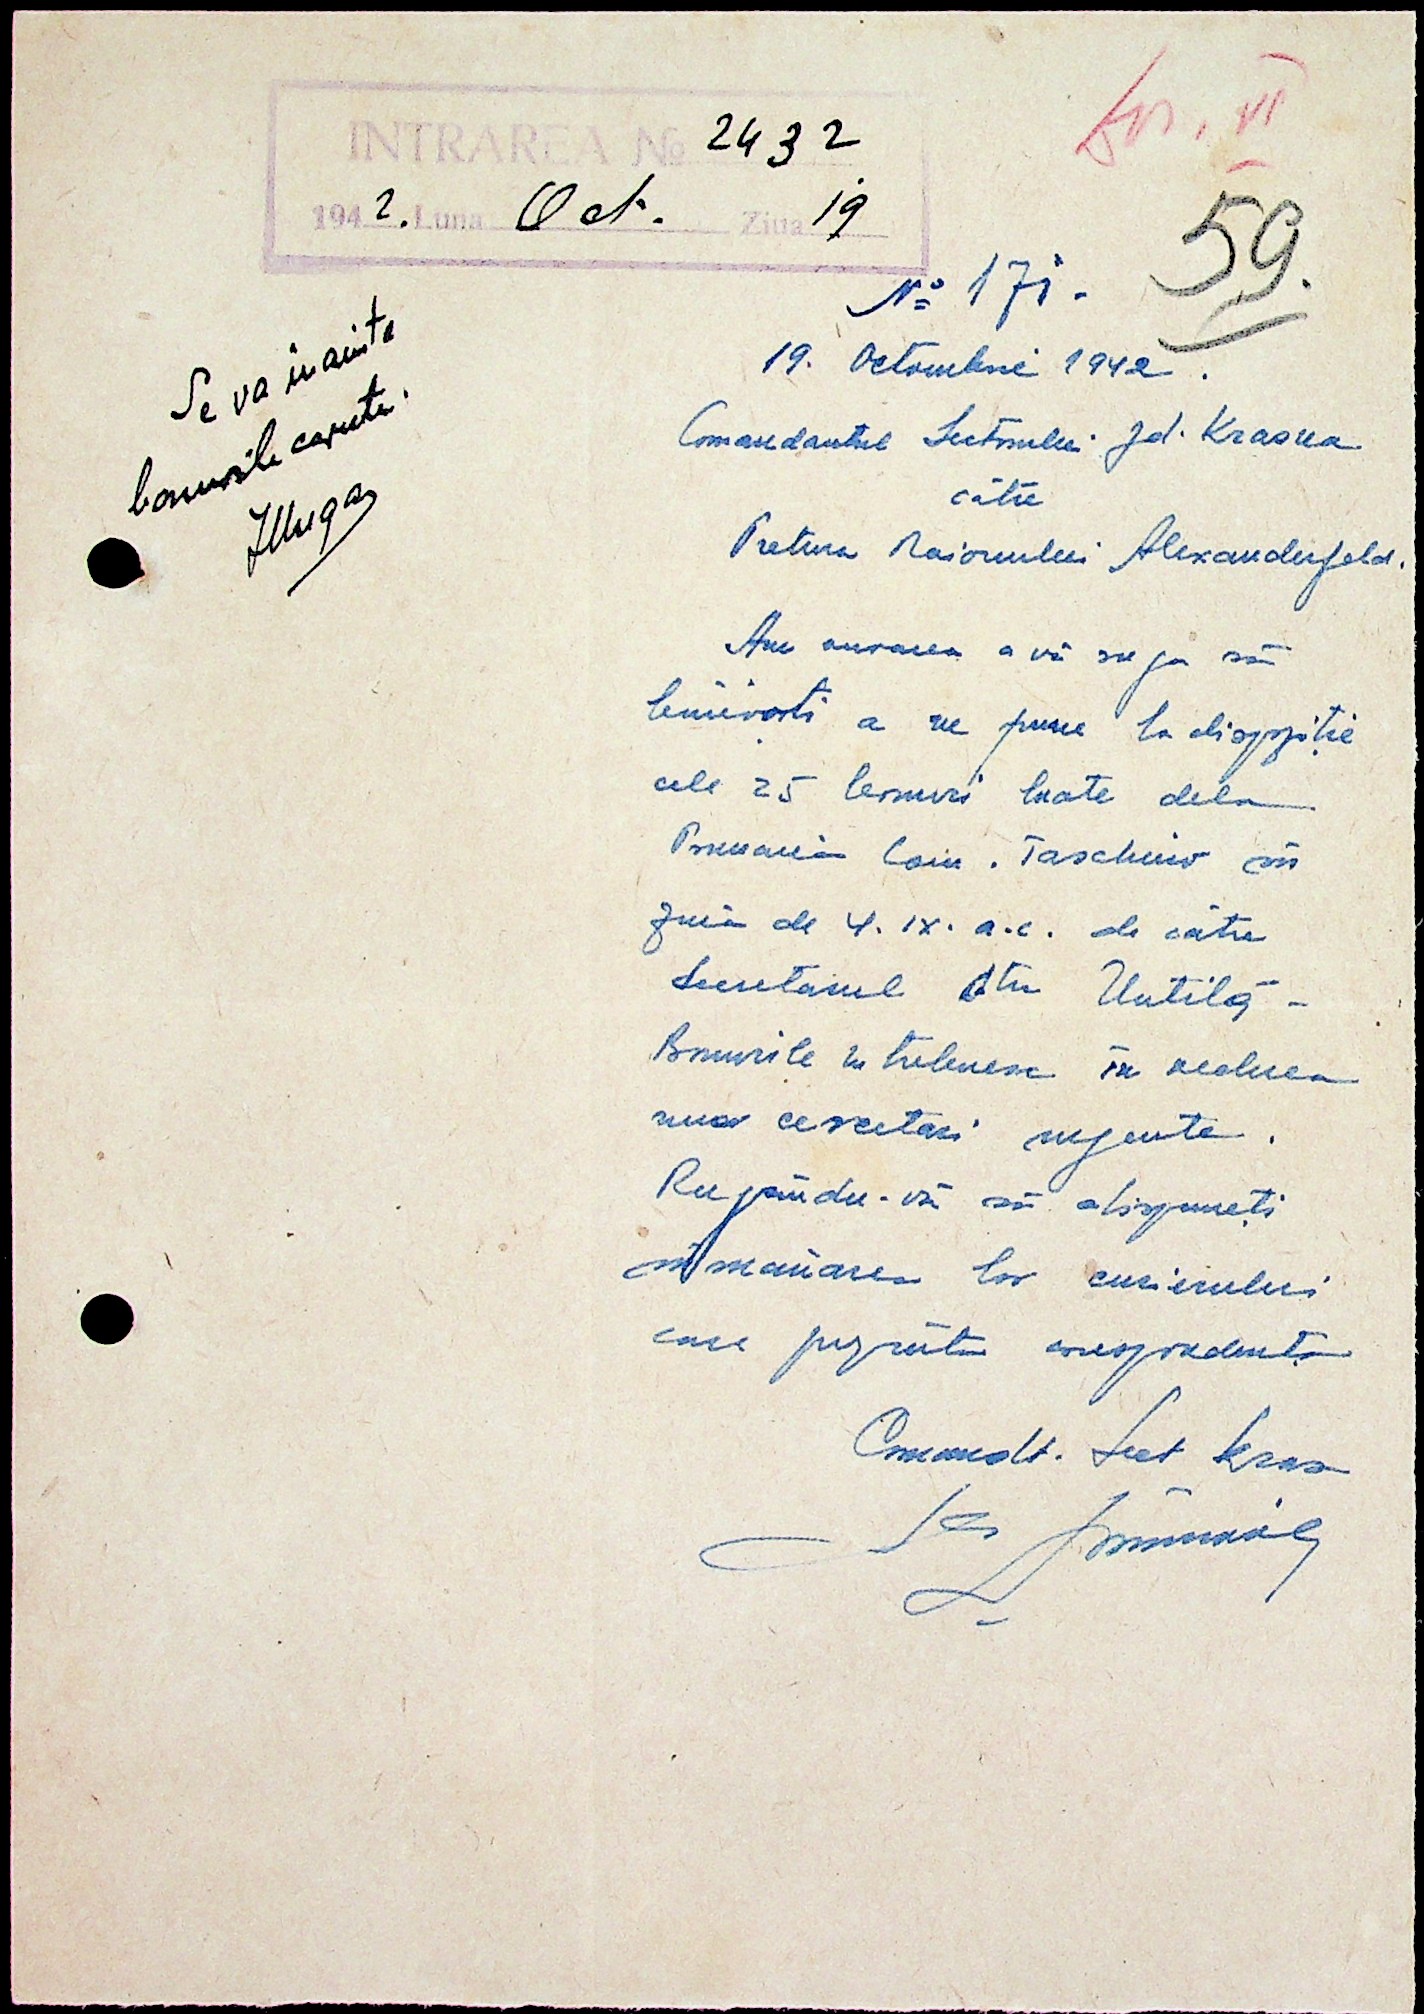 INTRAREA No 2432
1942. Luna Oct. Ziua 19
59.
No 171.
19. Octombrie 1942.
Se va înainta
bonurile cerute.
Comandantul Sectorului Jd. Krasna
către
Pretura Raionului Alexanderfeld.
Am onoarea a vă ruga să
binevoiți a ne pune la dispoziție
cele 25 bonuri luate dela
Primăria Com. Taschino în
ziua de 4. IX. a.c. de către
Secretarul
Bonurile ne trebuesc în vederea
unor cercetări urgente.
Rugându-vă să dispuneți
înmânarea lor curierului
care prezintă corespondența
Comandt. Sect Kras